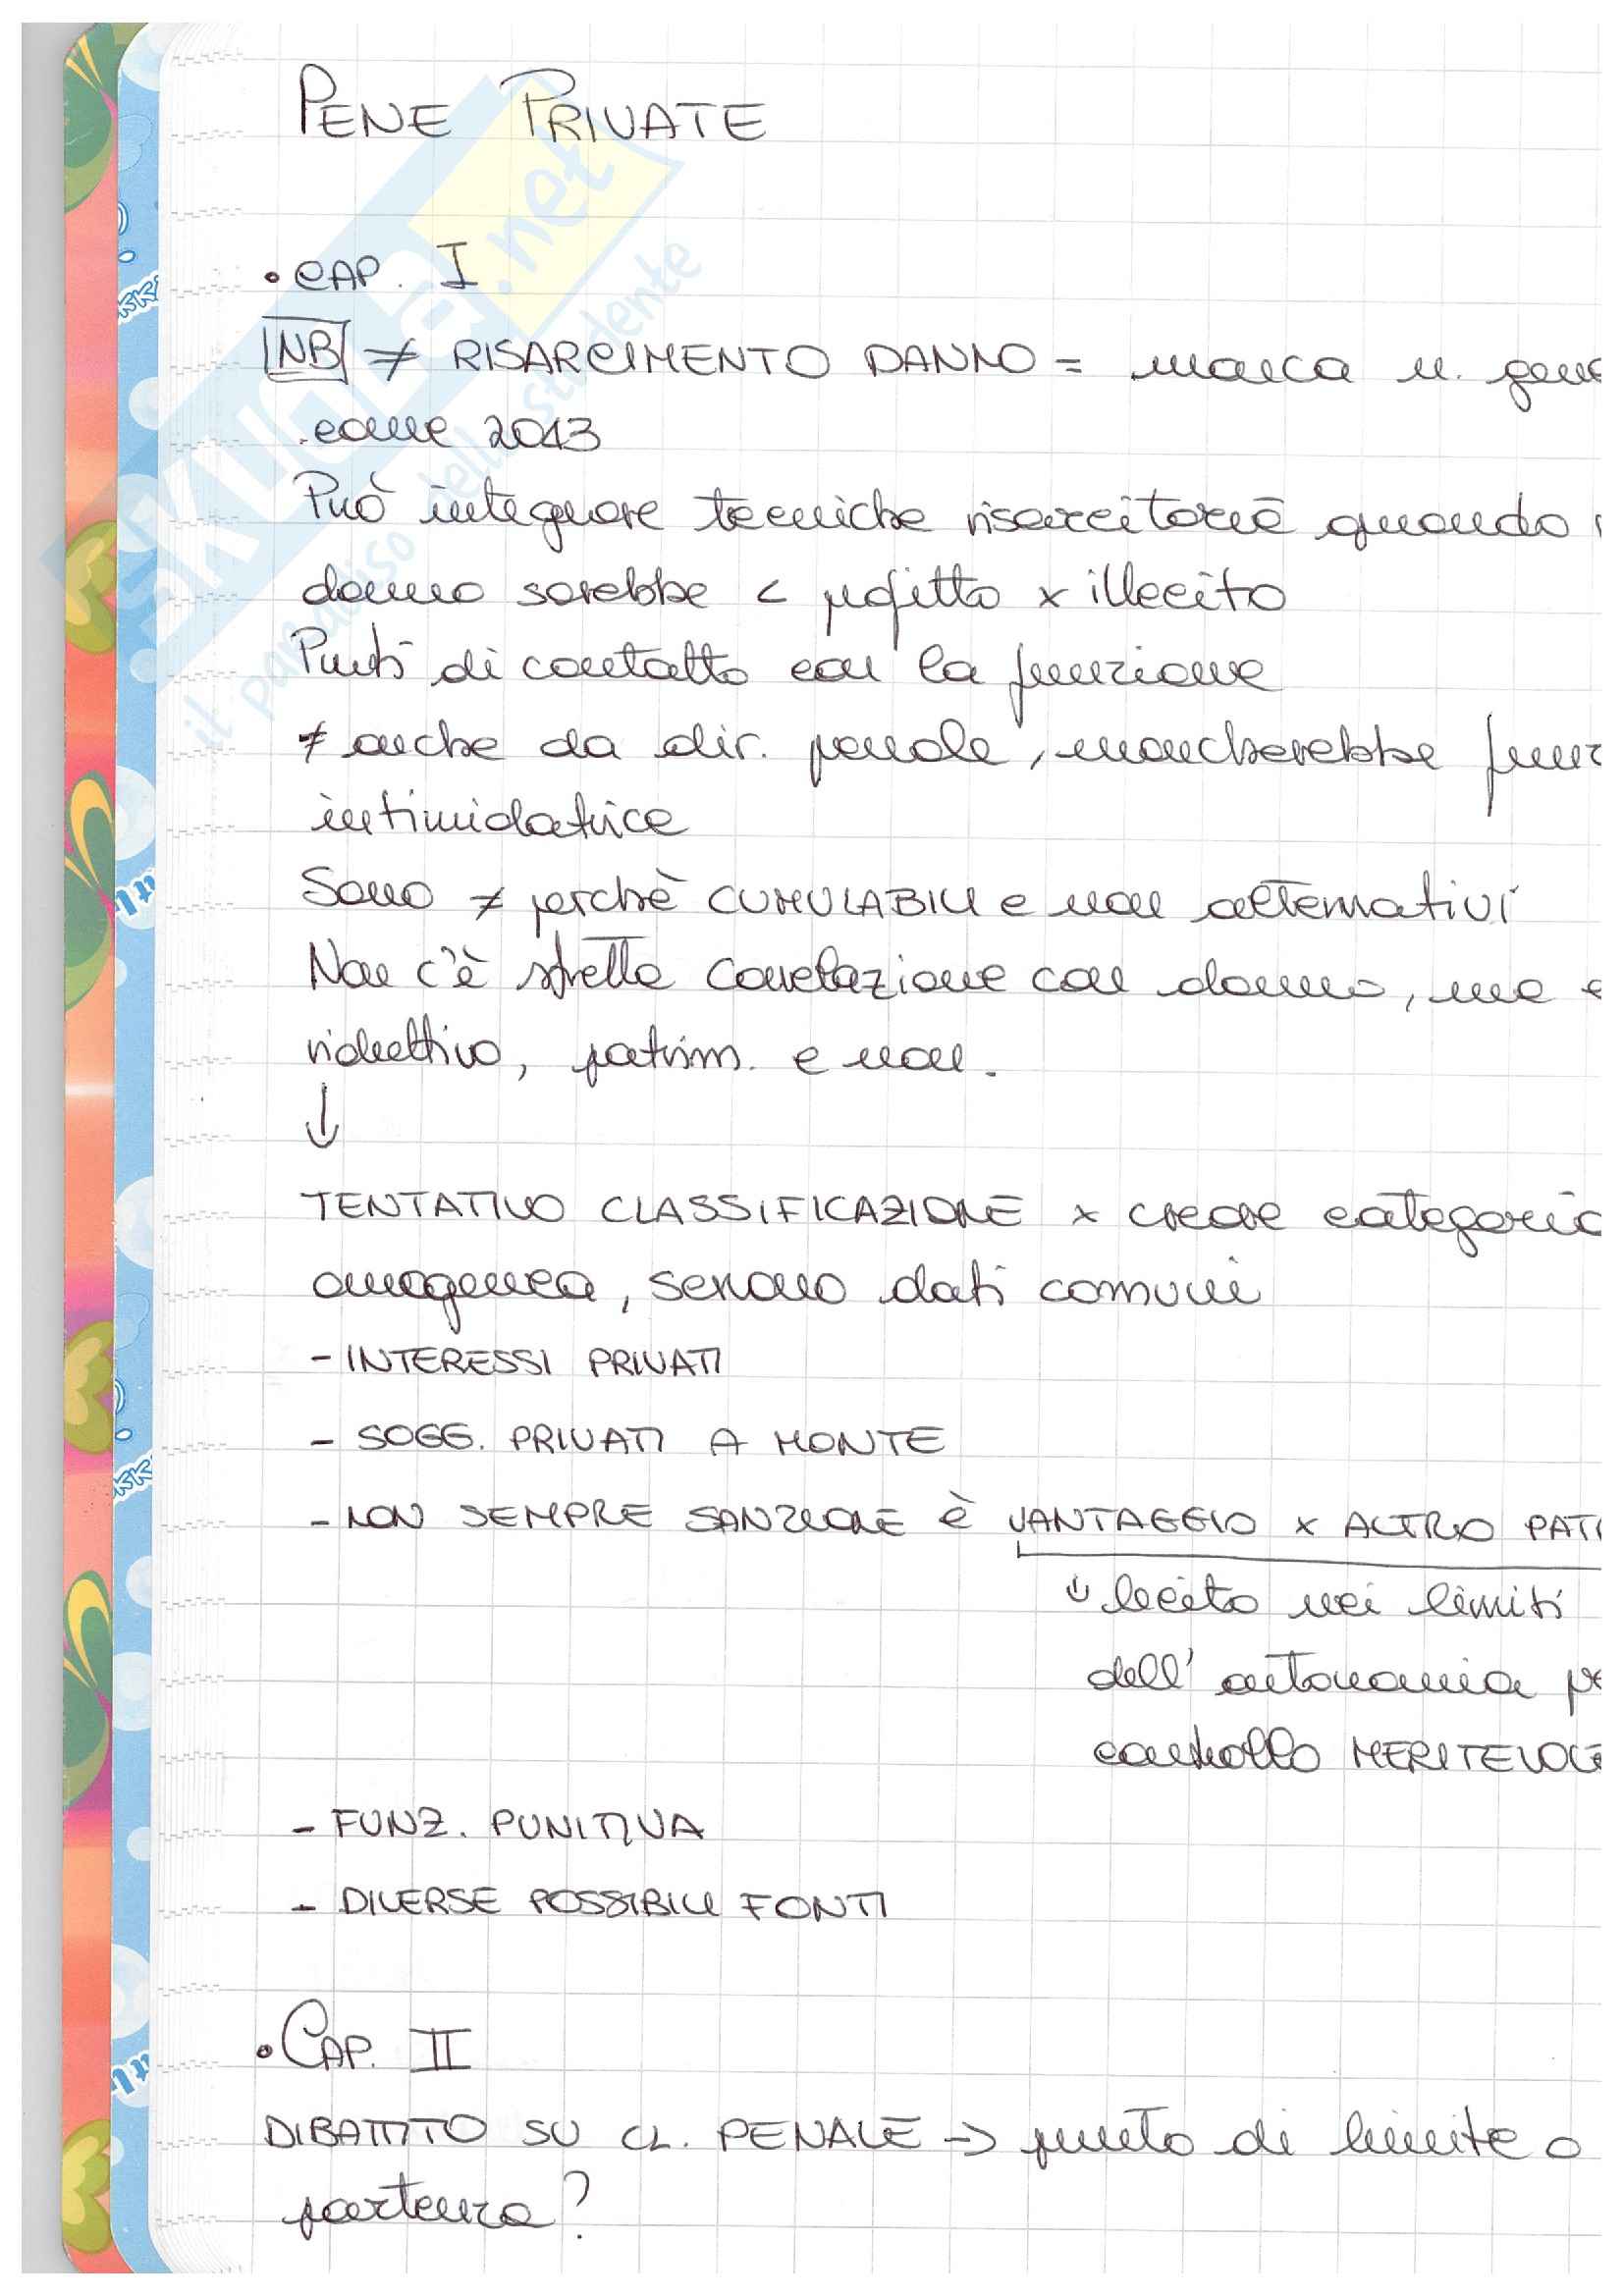 PENE PRIVATE
• CAP. I
NB ≠ RISARCIMENTO DANNO = manca n. gene
come 2043
Può integrare tecniche risarcitorie quando
danno sarebbe < profitto x illecito
Punti di contatto con la funzione
≠ anche da dir. penale, mancherebbe funz
intimidatrice
Sono ≠ perchè CUMULABILI e non alternativi
Non c'è stretta correlazione con danno, ma
riduttivo, patrim. e non.
↓
TENTATIVO CLASSIFICAZIONE x creare categoria
omogenea, servono dati comuni
- INTERESSI PRIVATI
- SOGG. PRIVATI A MONTE
- NON SEMPRE SANZIONE È VANTAGGIO x ALTRO PATR
↓ lecito nei limiti
dell'autonomia
controllo MERITEVOLE
- FUNZ. PUNITIVA
- DIVERSE POSSIBILI FONTI
• CAP. II
DIBATTITO SU CL. PENALE → punto di limite o
partenza?
SKUOLA.net
il paradiso dello studente